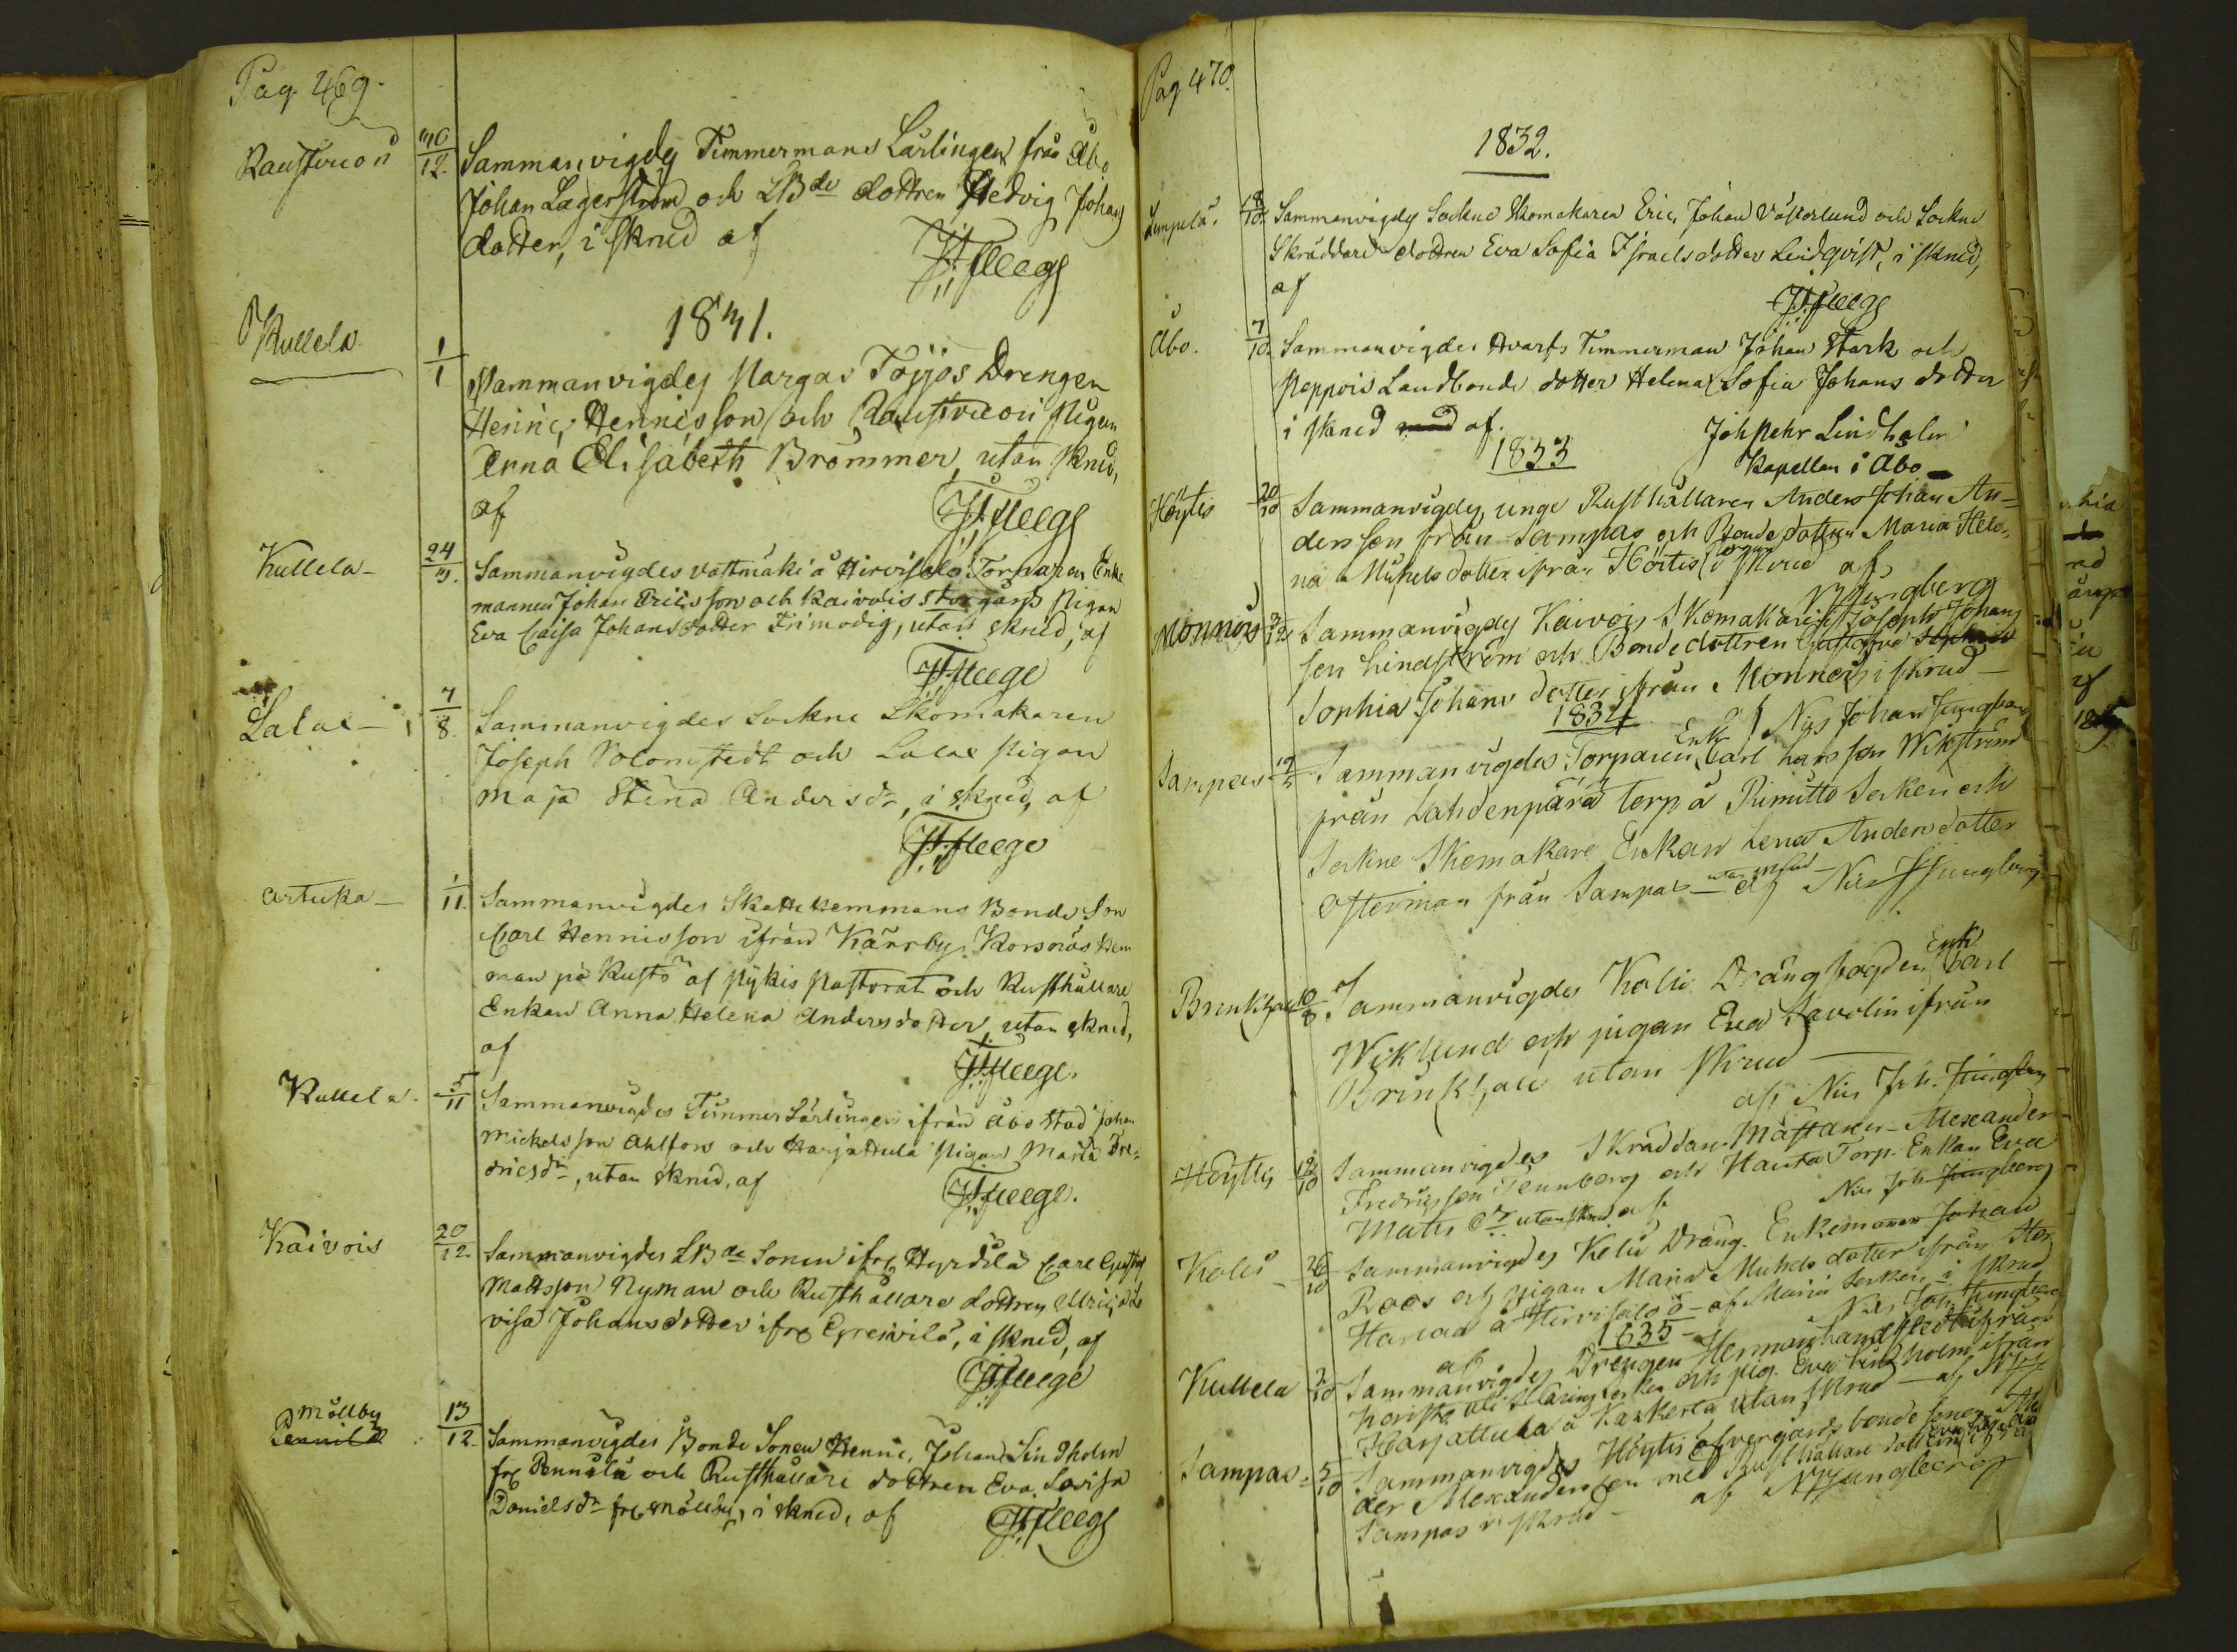 Pag. 469.
30/12. Sammanvigdes Timmermans Lärlingen från Åbo
Johan Lagerström och LBde dottren Hedvig Johans
dotter, i skrud af
1831.
Kullela 1/1 Sammanvigdes Pargas Töjjös Drengen
Henric Henricsson och pigan
Elisabeth Brömmer, utan skrud,
af
Kullela 24/3. Sammanvigdes Vattmäki å Hirvisalo Torparen Enke
mannen Johan Ericsson och Kaivois Storgårds Pigan
Eva Caisa Johansdotter Frimodig, utan skrud, af
Lalax 7/8. Sammanvigdes Sockne Skomakaren
Joseph Solomstedt och Lalax Pigan
Maja Stina Andersdr, i skrud, af
Artuka 1/11. Sammanvigdes Skattehemmans Bonde Son
Carl Henricsson ifrån Kärrby Korsnäs hem
man på Kustö af Pykis Pastorat och Rusthållare
Enkan Anna Helena Andersdotter, utan skrud,
af
Kullela. 5/11 Sammanvigdes Timmer Lärlingen ifrån Åbo Stad Johan
Mickelsson Ahlfors och Harjattula Pigan Maria Fre-
dricsdr, utan skrud, af
Kaivois 20/12. Sammanvigdes LBde Sonen ifrn Carl Gustaf
Mattsson Nyman och Rusthållare dottren Ulrica Lo
visa Johansdotter ifrn i skrud, af
Möllby
Pennilä 13/12. Sammanvigdes Bonde Sonen Henric Johan Lindholm
frn Pennilä och Rusthållare dottren Eva Lovisa
Danielsdr frn Möllby, i skrud, af
Pag 470.
1832.
18/10. Sammanvigdes Sockne Skomakaren Eric Johan Västerlund och Sockne
Skräddare dottren Eva Sofia Israelsdotter Lindqvist, i skrud,
af
Åbo. 7/10. Sammanvigdes Hvarfs Timmerman Johan Stark och
Papois Landbonde dotter Helena Sofia Johans dotter
i skrud af. Joh Pehr Lindholm
1833 Kapellan i Åbo
Höytis 20/10 Sammanvigdes unge Rusthållaren Anders Johan An-
dersson från Sampas och Bonde dottren Maria Hele-
na Michels dotter ifrån Höitis i skrud af
Monnois 3/12 Sammanvigdes Kaivois Skomakare Joseph Johans
son Lindström och Bonde dottren
Sophia Johans dotter ifrån Monnois i skrud
1834 af Nils Johan Ljungberg
Sampas 19/5 Sammanvigdes Torparen Enk Carl hansson Wikström
från Lahdenpärä torp å Rimitto Socken och
Sockne Skomakare Enkan Lena Anders dotter
Österman från Sampas utan skrud af Nils Ljungberg
Brinkhall 10/8 Sammanvigdes Kolis Drängfogden Enk Carl
Wiklund och pigan Eva Savolin ifrån
Brinkhall utan skrud
af Nils Joh. Ljungberg
Höytis 12/10 Sammanvigdes Skräddare Mästaren Alexander
Fredricsson Tennberg och Hauta Torp Enkan Eva
Matts dr utan skrud af Nils Joh Ljungberg
Kolis 26/10 Sammanvigdes Kolis Dräng Enkemannen Johan
Roos och pigan Maria Michels dotter ifrån Stor
Hariad å Hirvisalo af Marie Socken i skrud
1835 af Nils Joh Ljungberg
Kullela 2/10 Sammanvigdes Drengen Herman ifrån
Socken och pig. Eva Lindholm ifrån
Harjattula å Kaskerta utan skrud af
Sampas 5/10 Sammanvigdes Höytis öfvergårds bonde sonen Alexan
der Alexandersson med Rusthållare dottren
Sampas i skrud af NJLjungberg